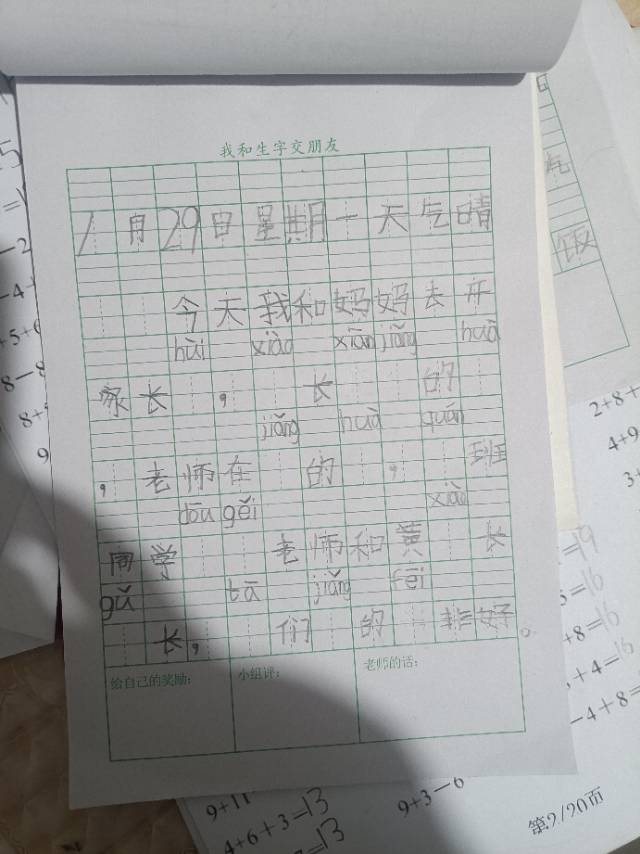 我和生字交朋友
1月29日星期一天气晴
今天我和妈妈去开
hùi xiào xiān jiǎng huà
家长，长的
jiǎng huà quán
，老师在的，班
dōu gěi xiào
同学老师和黄长
gǔ tā jiǎng fēi
长，们的好。
给自己的奖励：
小组评：
老师的话：
饭
2+8+
4+9
9+11
4+6+3=13
9+3-6
+4=16
-4+8=
第2/20页